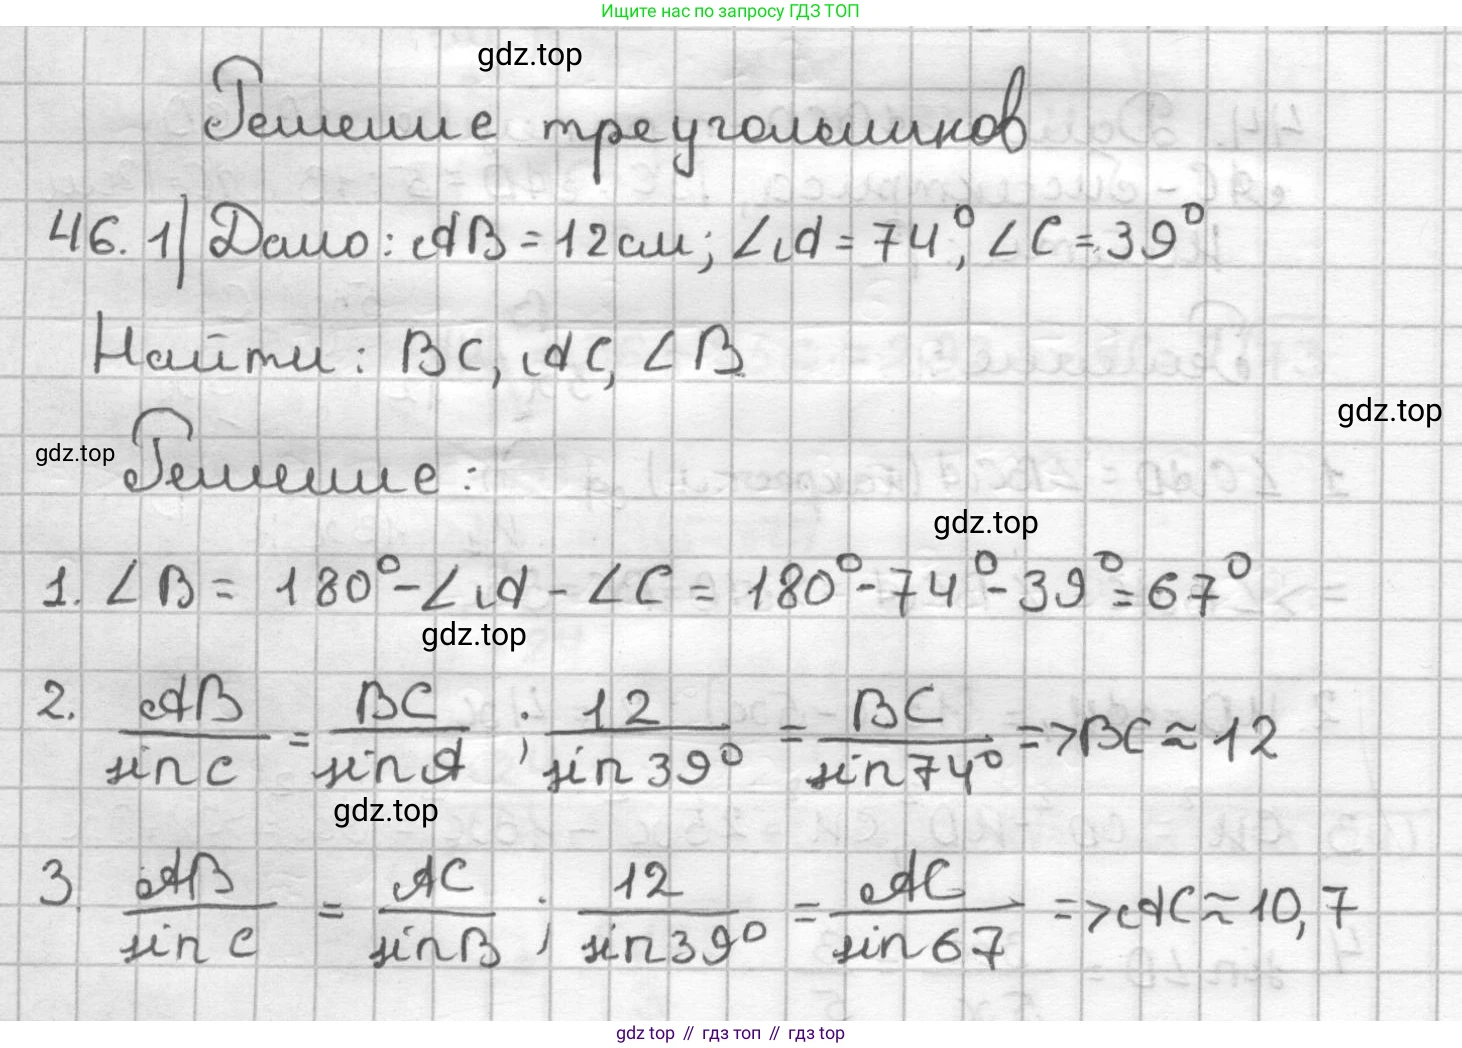 Ищите нас по запросу ГДЗ ТОП
gdz.top
Решение треугольников
46. 1) Дано: AB = 12 см; ∠A = 74°, ∠C = 39°
Найти: BC, AC, ∠B
gdz.top
gdz.top
Решение:
gdz.top
1. ∠B = 180° - ∠A - ∠C = 180° - 74° - 39° = 67°
gdz.top
2. AB/sin C = BC/sin A ; 12/sin 39° = BC/sin 74° => BC ≈ 12
gdz.top
3. AB/sin C = AC/sin B ; 12/sin 39° = AC/sin 67 => AC ≈ 10,7
gdz top // гдз топ // gdz top